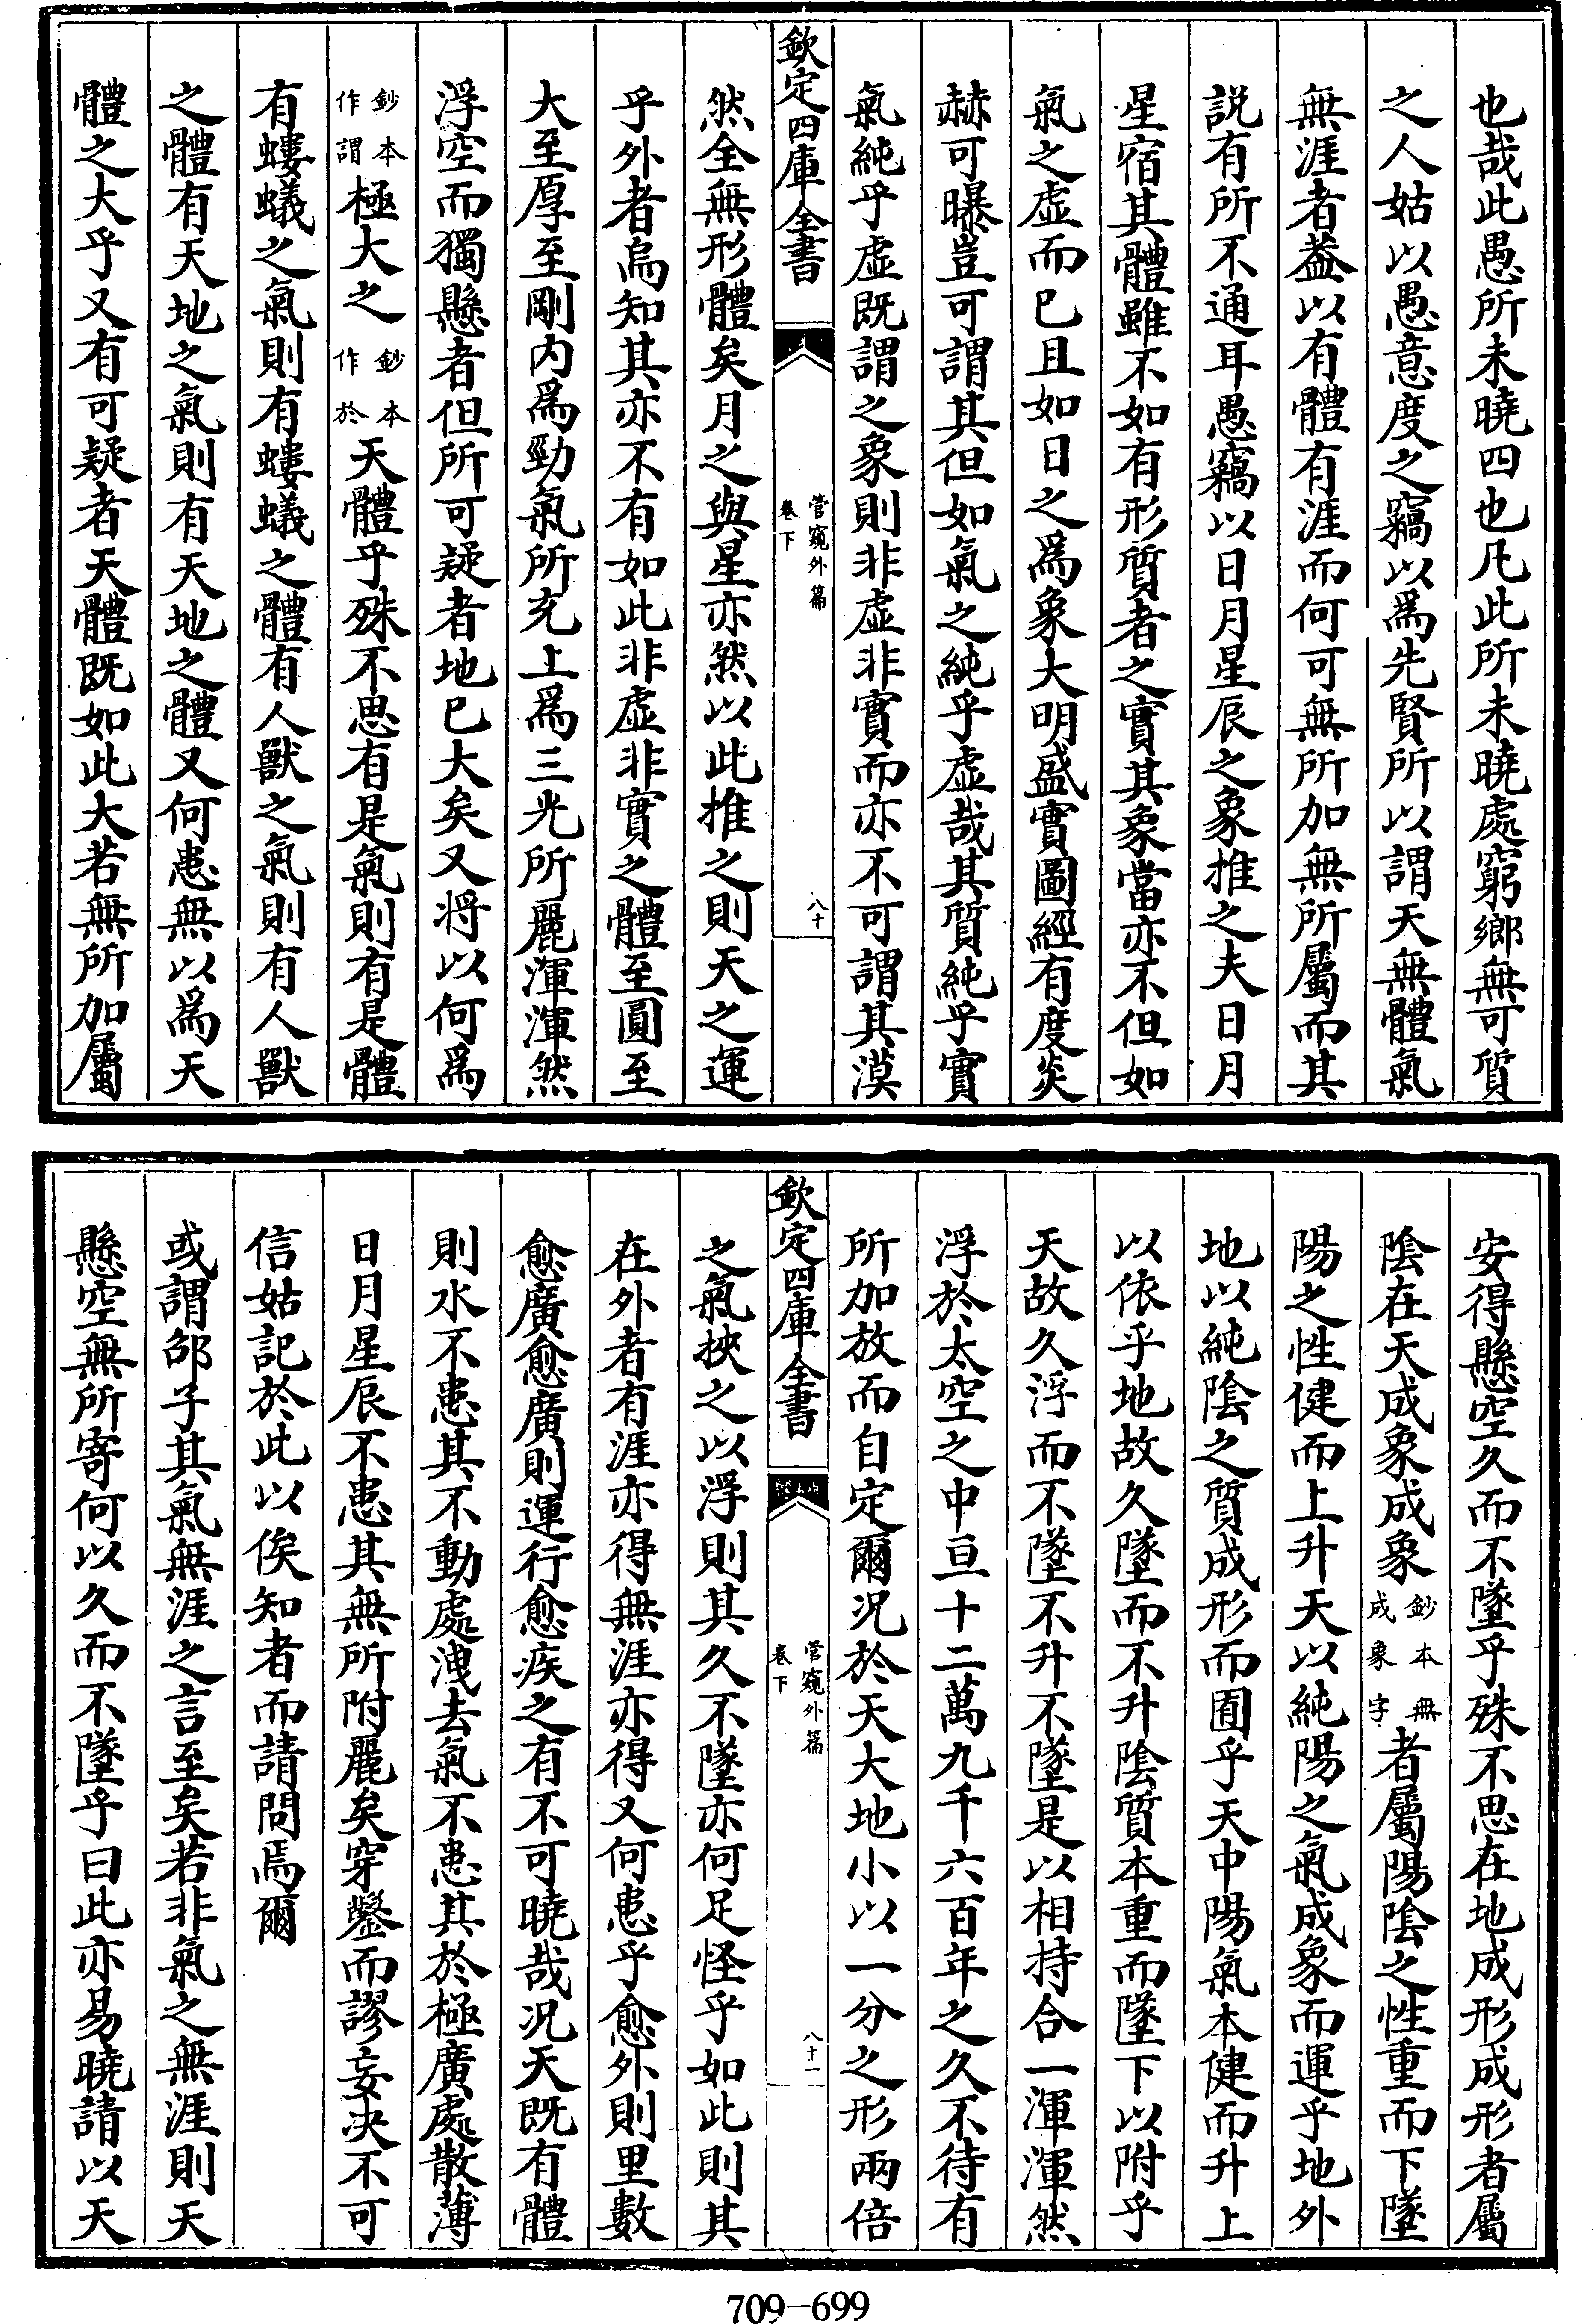 也哉此愚所未曉四也凡此所未曉處窮鄉無可質
之人姑以愚意度之竊以為先賢所以謂天無體氣
無涯者葢以有體有涯而何可無所加無所屬而其
説有所不通耳愚竊以日月星辰之象推之夫日月
星宿其體雖不如有形質者之實其象當亦不但如
氣之虛而已且如日之為象大明盛實圖經有度炎
赫可曝豈可謂其但如氣之純乎虛哉其質純乎實
氣純乎虛既謂之象則非虛非實而亦不可謂其漠
欽定四庫全書
管窺外篇
卷下
八十
然全無形體矣月之與星亦然以此推之則天之運
乎外者烏知其亦不有如此非虛非實之體至圓至
大至厚至剛内為勁氣所充上為三光所麗渾渾然
浮空而獨懸者但所可疑者地已大矣又將以何為
鈔本作謂極大之鈔本作於天體乎殊不思有是氣則有是體
有螻蟻之氣則有螻蟻之體有人獸之氣則有人獸
之體有天地之氣則有天地之體又何患無以為天
體之大乎又有可疑者天體既如此大若無所加屬
安得懸空久而不墜乎殊不思在地成形成形者屬
陰在天成象成象鈔本無成象字者屬陽陰之性重而下墜
陽之性健而上升天以純陽之氣成象而運乎地外
地以純陰之質成形而囿乎天中陽氣本健而升上
以依乎地故久墜而不升陰質本重而墜下以附乎
天故久浮而不墜不升不墜是以相持合一渾渾然
浮於太空之中亘十二萬九千六百年之久不待有
所加放而自定爾况於天大地小以一分之形兩倍
欽定四庫全書
管窺外篇
卷下
八十一
之氣挾之以浮則其久不墜亦何足怪乎如此則其
在外者有涯亦得無涯亦得又何患乎愈外則里數
愈廣愈廣則運行愈疾之有不可曉哉况天既有體
則水不患其不動處洩去氣不患其於極廣處散薄
日月星辰不患其無所附麗矣穿鑿而謬妄决不可
信姑記於此以俟知者而請問焉爾
或謂邵子其氣無涯之言至矣若非氣之無涯則天
懸空無所寄何以久而不墜乎曰此亦易曉請以天
709-699